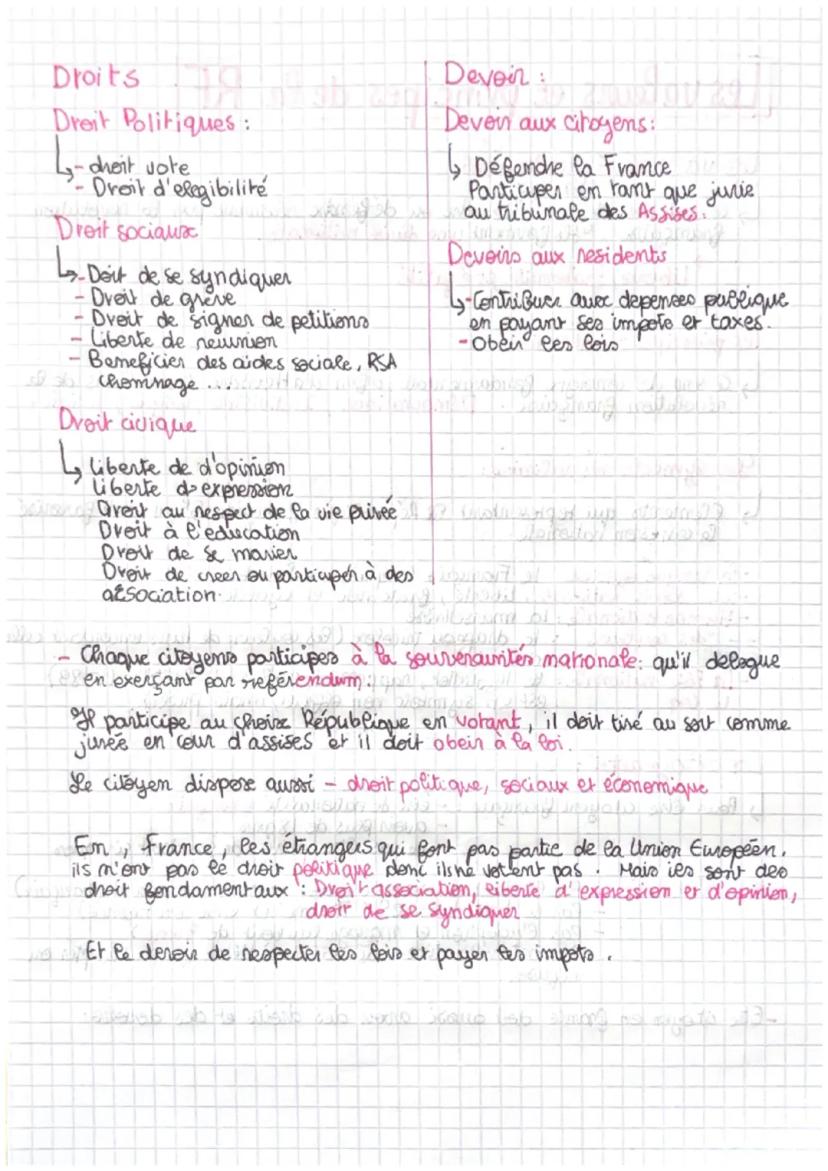 Droits
Droit Politiques :
- droit vote
- Droit d'elegibilité
Droit sociaux
- Doit de se syndiquer
- Droit de grève
- Droit de signer de petitions
- Liberte de reunion
- Beneficier des aides sociale, RSA
chomnage ...
Droit civique
liberte de d'opinion
liberte d'expression
Droit au respect de la vie privée
Droit à l'education
Droit de se marier
Droit de creer ou participer à des
association.
Devoir :
Devoir aux citoyens :
Défendre la France
Participer en tant que jurie
au tribunale des Assises.
Devoirs aux residents
- Contribuer avec depenses publique
en payant ses impots et taxes.
- Obeir les lois
- Chaque citoyens participes à la souveraintés nationale : qu'il delegue
en exerçant par referendum.
Il participe au choix République en votant, il doit tiré au sort comme
jurée en cour d'assises et il doit obeir à la loi.
Le citoyen dispose aussi - droit politique, sociaux et économique
En, France, les étrangers qui font pas partie de la Union Européen.
ils n'ont pas le droit politique donc ils ne votent pas. Mais ies sont des
droit fondamentaux : Droit association, liberte d'expression et d'opinion,
droit de se syndiquer
Et le devoir de respecter les lois et payer les impots.